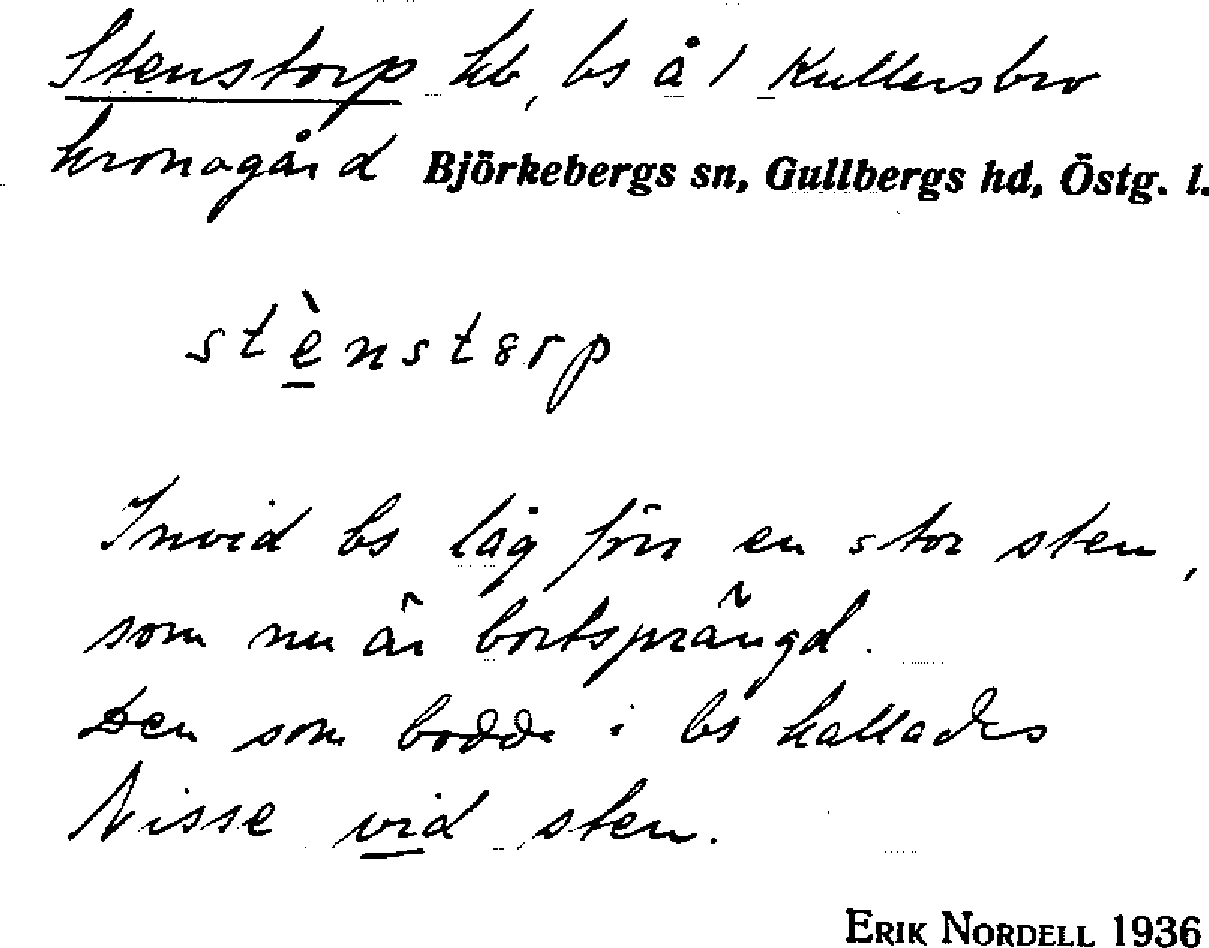 Stenstorp hb, bs å 1 Kullersbro
kronogård Björkebergs sn, Gullbergs hd, Östg. l.
stènstȣrp
Invid bs låg förr en stor sten,
som nu är bortsprängd.
Den som bodde i bs kallades
Nisse vid sten.
ERIK NORDELL 1936